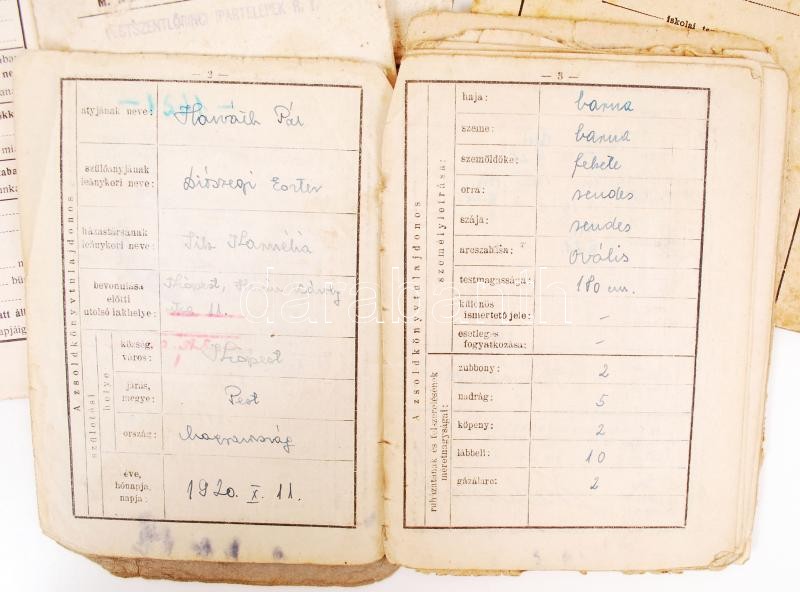 PESTSZENTLŐRINCI IPARTELEPEK R. T.
iskolai
— 2 —
A zsoldkönyvtulajdonos
atyjának neve: Horváth Pál
szülőanyjának
leánykori neve: Diószegi Eszter
házastársának
leánykori neve: Kornélia
bevonulása
előtti
utolsó lakhelye:
11.
születési helye
község,
város: Kispest
járás,
megye: Pest
ország: Magyarország
éve,
hónapja,
napja: 1920. X. 11.
— 3 —
A zsoldkönyvtulajdonos
személyleírása:
haja: barna
szeme: barna
szemöldöke: fekete
orra: rendes
szája: rendes
arcszabása: ovális
testmagassága: 180 cm.
különös
ismertető jele: –
esetleges
fogyatkozása: –
ruházatának és felszerelésének
méretnagyságai:
zubbony: 2
nadrág: 5
köpeny: 2
lábbeli: 10
gázálarc: 2
darabanth